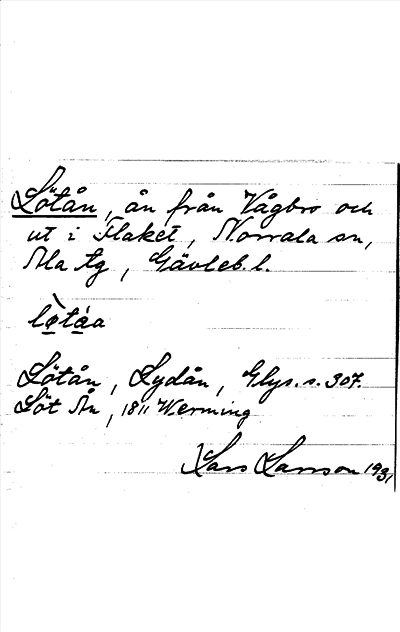 Lötån, ån från Vågbro och
ut i Flaket, Norrala sn,
Ala tg, Gävleb. l.
lø̀táa
Lötån, Lydån, Glys. s. 307.
Löt Ån, 1811 Werming
Lars Larsson 1931